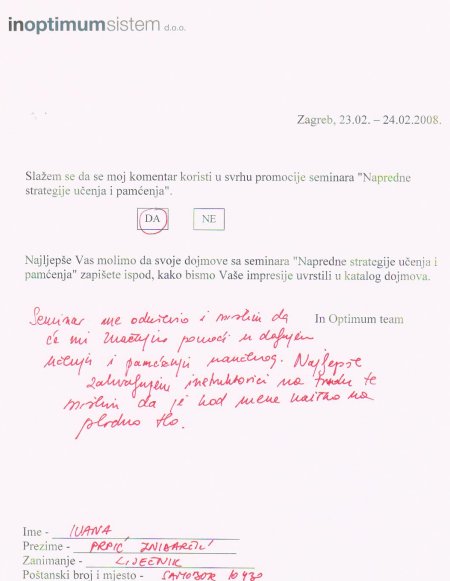 inoptimumsistem d.o.o.
Zagreb, 23.02. – 24.02.2008.
Slažem se da se moj komentar koristi u svrhu promocije seminara "Napredne
strategije učenja i pamćenja".
DA NE
Najljepše Vas molimo da svoje dojmove sa seminara "Napredne strategije učenja i
pamćenja" zapišete ispod, kako bismo Vaše impresije uvrstili u katalog dojmova.
In Optimum team
Seminar me oduševio i mislim da
će mi značajno pomoći u daljnjem
učenju i pamćenju naučenog. Najljepše
zahvaljujem instruktorici na trudu te
mislim da je kod mene naišao na
plodno tlo.
Ime - IVANA
Prezime - PRPIĆ
Zanimanje - LIJEČNIK
Poštanski broj i mjesto - SAMOBOR 10430